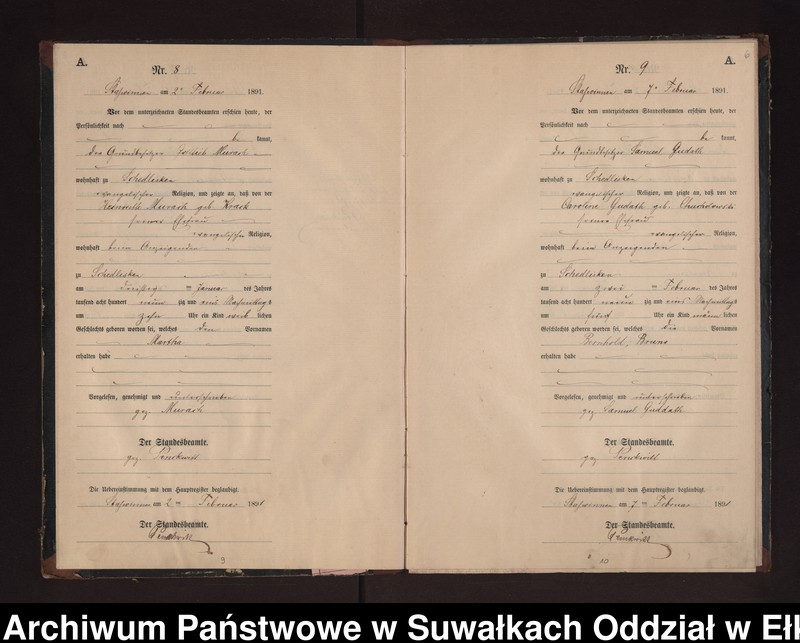 A.
Nr. 8
am 2 Februar 1891.
Vor dem unterzeichneten Standesbeamten erschien heute, der
Persönlichkeit nach
be kannt,
der Grundbesitzer
wohnhaft zu Schedlisken
evangelischer Religion, und zeigte an, daß von der
geb.
seiner Ehefrau
evangelischer Religion,
wohnhaft beim Anzeigenden
zu Schedlisken
am dreißig ten Januar des Jahres
tausend acht hundert neun zig und eins Nachmittags
um zehn Uhr ein Kind weib lichen
Geschlechts geboren worden sei, welches den Vornamen
Martha
erhalten habe
Vorgelesen, genehmigt und unterschrieben
gez.
Der Standesbeamte.
gez.
Die Uebereinstimmung mit dem Hauptregister beglaubigt.
am 2 ten Februar 1891
Der Standesbeamte.
9
A.
6
Nr. 9
am 7 Februar 1891.
Vor dem unterzeichneten Standesbeamten erschien heute, der
Persönlichkeit nach
be kannt,
der Grundbesitzer Samuel Gudath
wohnhaft zu Schedlisken
evangelischer Religion, und zeigte an, daß von der
Caroline Gudath geb.
seiner Ehefrau
evangelischer Religion,
wohnhaft beim Anzeigenden
zu Schedlisken
am zwei ten Februar des Jahres
tausend acht hundert neun zig und eins Nachmittags
um fünf Uhr ein Kind männ lichen
Geschlechts geboren worden sei, welches die Vornamen
Bruno
erhalten habe
Vorgelesen, genehmigt und unterschrieben
gez. Samuel Guddath
Der Standesbeamte.
gez.
Die Uebereinstimmung mit dem Hauptregister beglaubigt.
am 7 ten Februar 1891
Der Standesbeamte.
10
Archiwum Państwowe w Suwałkach Oddział w Eł